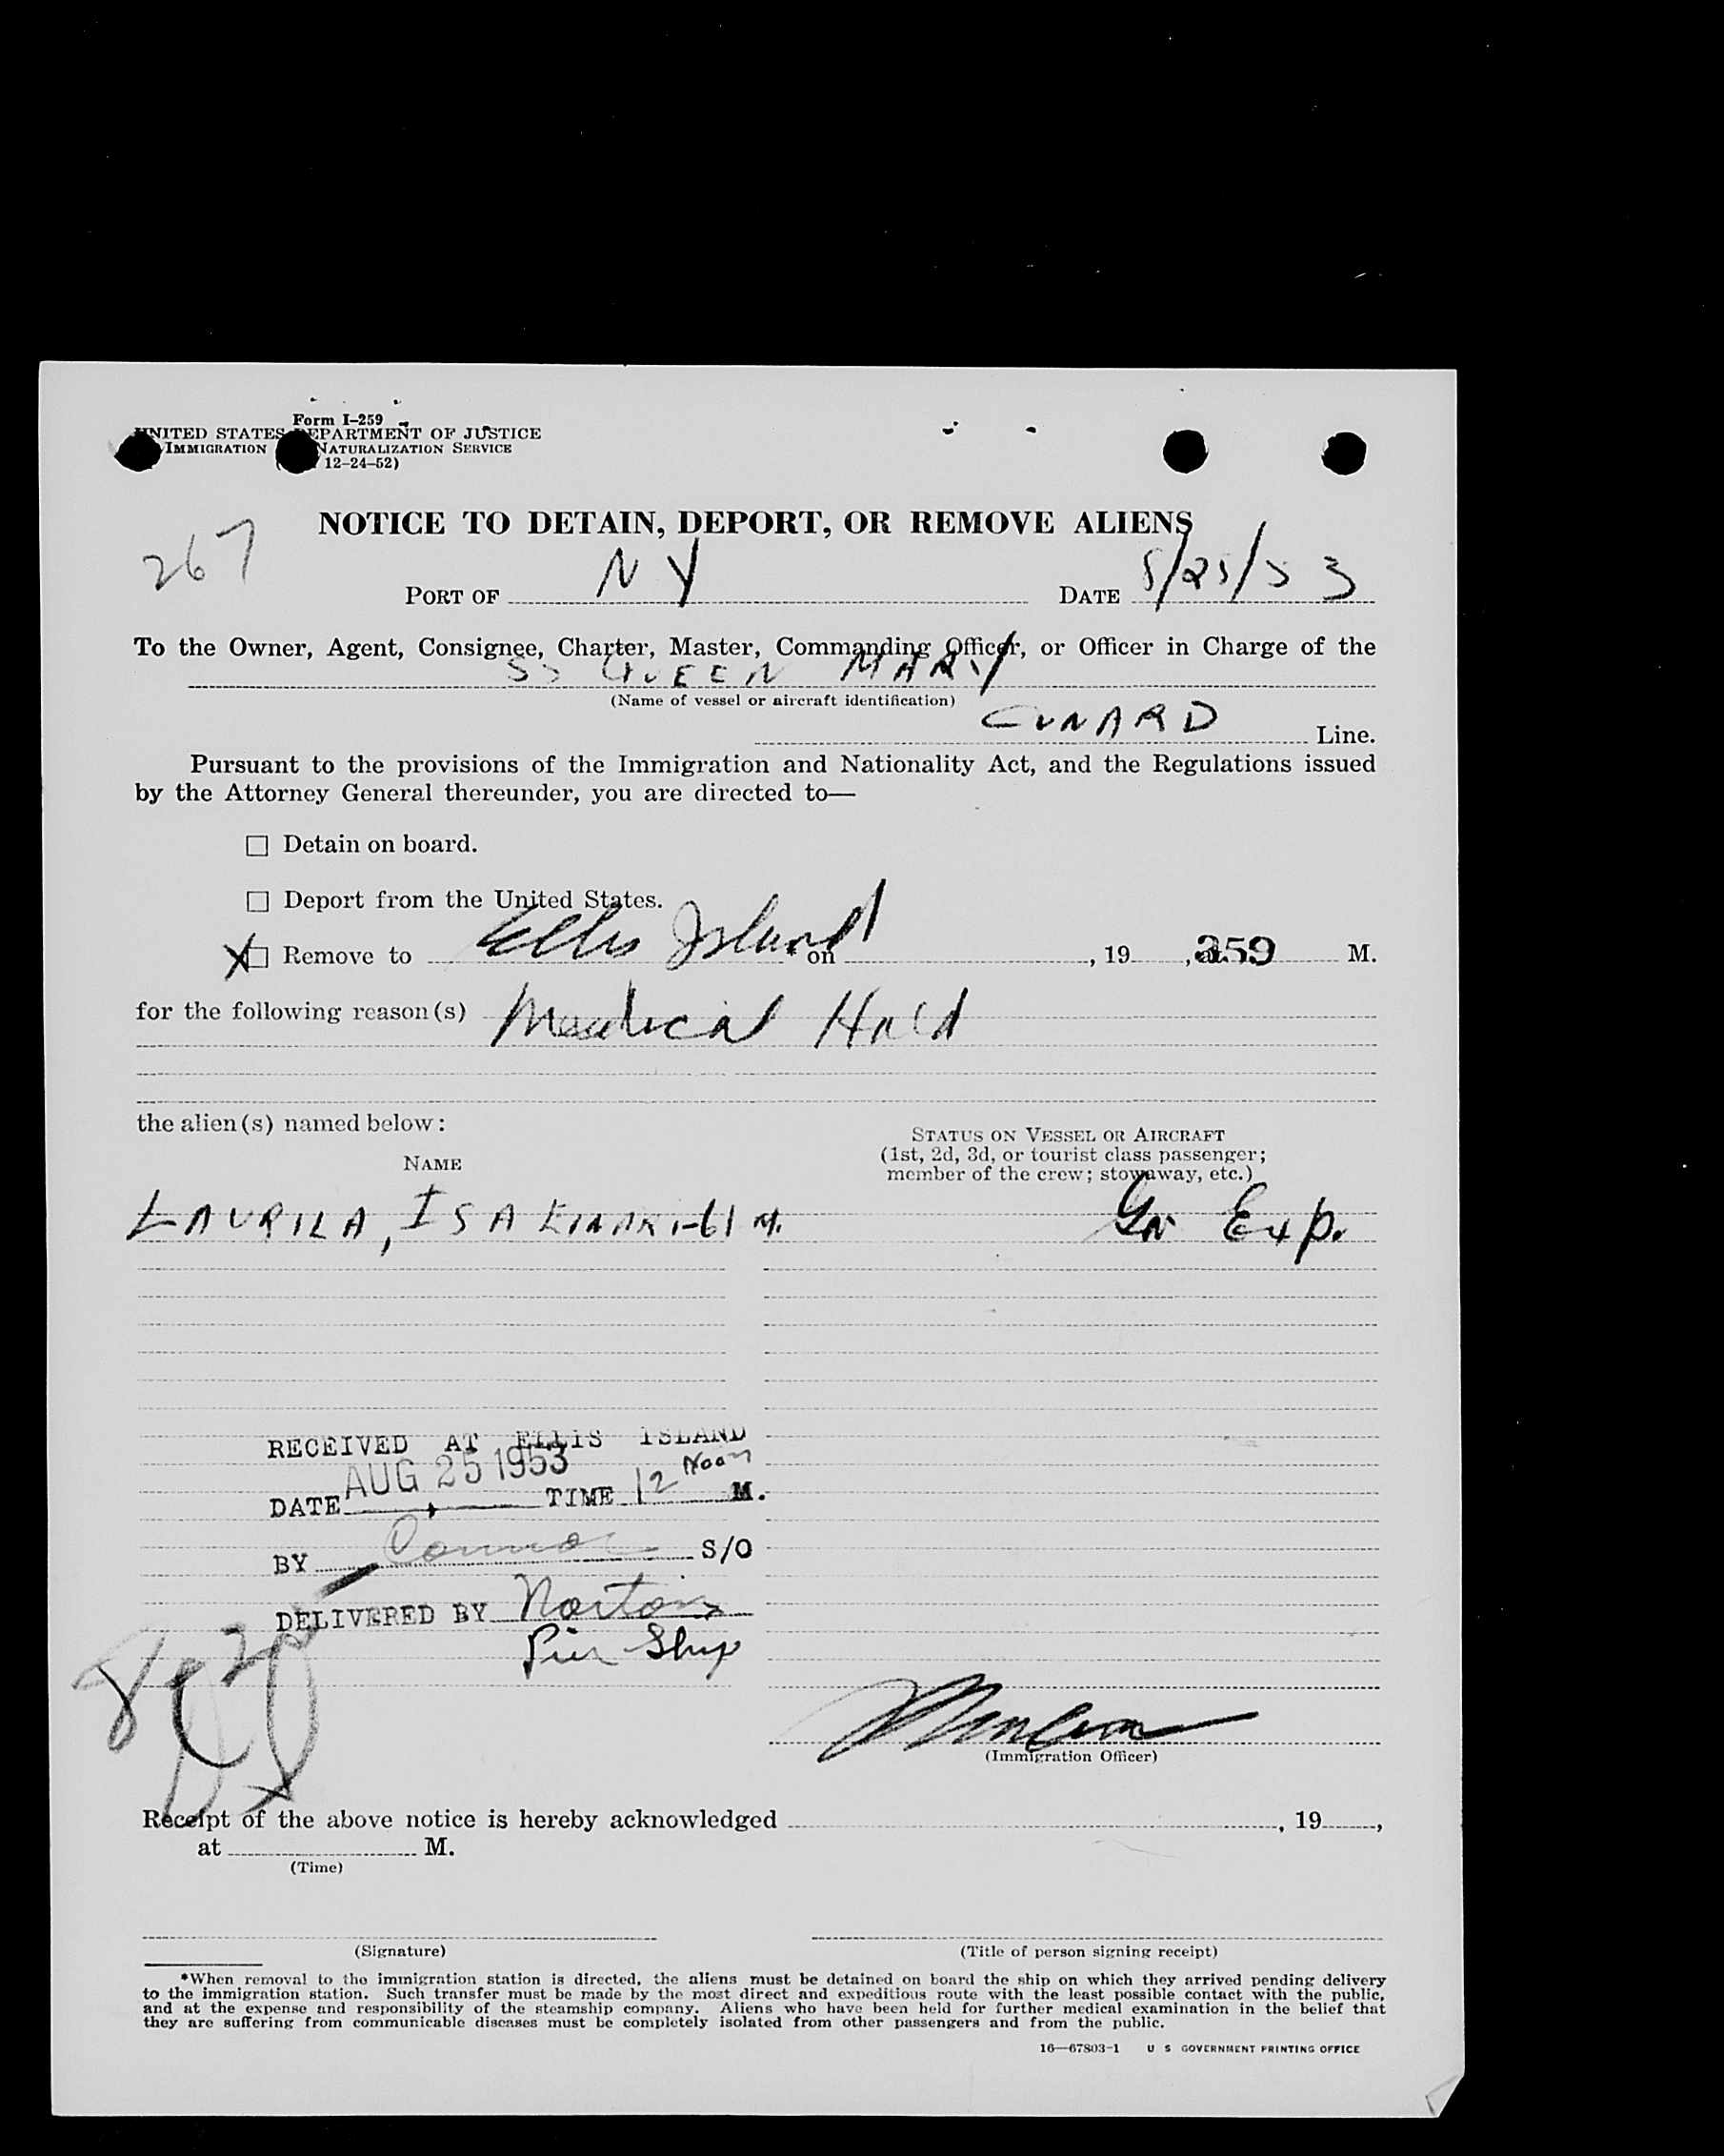 Form I-259
UNITED STATES DEPARTMENT OF JUSTICE
IMMIGRATION NATURALIZATION SERVICE
12-24-52)
267
NOTICE TO DETAIN, DEPORT, OR REMOVE ALIENS
PORT OF NY DATE 8/25/53
To the Owner, Agent, Consignee, Charter, Master, Commanding Officer, or Officer in Charge of the
SS QUEEN MARY
(Name of vessel or aircraft identification)
CUNARD Line.
Pursuant to the provisions of the Immigration and Nationality Act, and the Regulations issued
by the Attorney General thereunder, you are directed to—
☐ Detain on board.
☐ Deport from the United States.
X☐ Remove to Ellis Island * on , 19 , at 359 M.
for the following reason(s) Medical Hold
the alien(s) named below:
STATUS ON VESSEL OR AIRCRAFT
(1st, 2d, 3d, or tourist class passenger;
member of the crew; stowaway, etc.)
NAME
LAURILA, ISA 61 M. Exp.
RECEIVED AT ELLIS ISLAND
DATE AUG 25 1953 TIME 12 Noon M.
BY Connor S/O
DELIVERED BY Norton
Pier Ship
(Immigration Officer)
Receipt of the above notice is hereby acknowledged , 19 ,
at M.
(Time)
(Signature) (Title of person signing receipt)
*When removal to the immigration station is directed, the aliens must be detained on board the ship on which they arrived pending delivery
to the immigration station. Such transfer must be made by the most direct and expeditious route with the least possible contact with the public,
and at the expense and responsibility of the steamship company. Aliens who have been held for further medical examination in the belief that
they are suffering from communicable diseases must be completely isolated from other passengers and from the public.
16—67803-1 U S GOVERNMENT PRINTING OFFICE